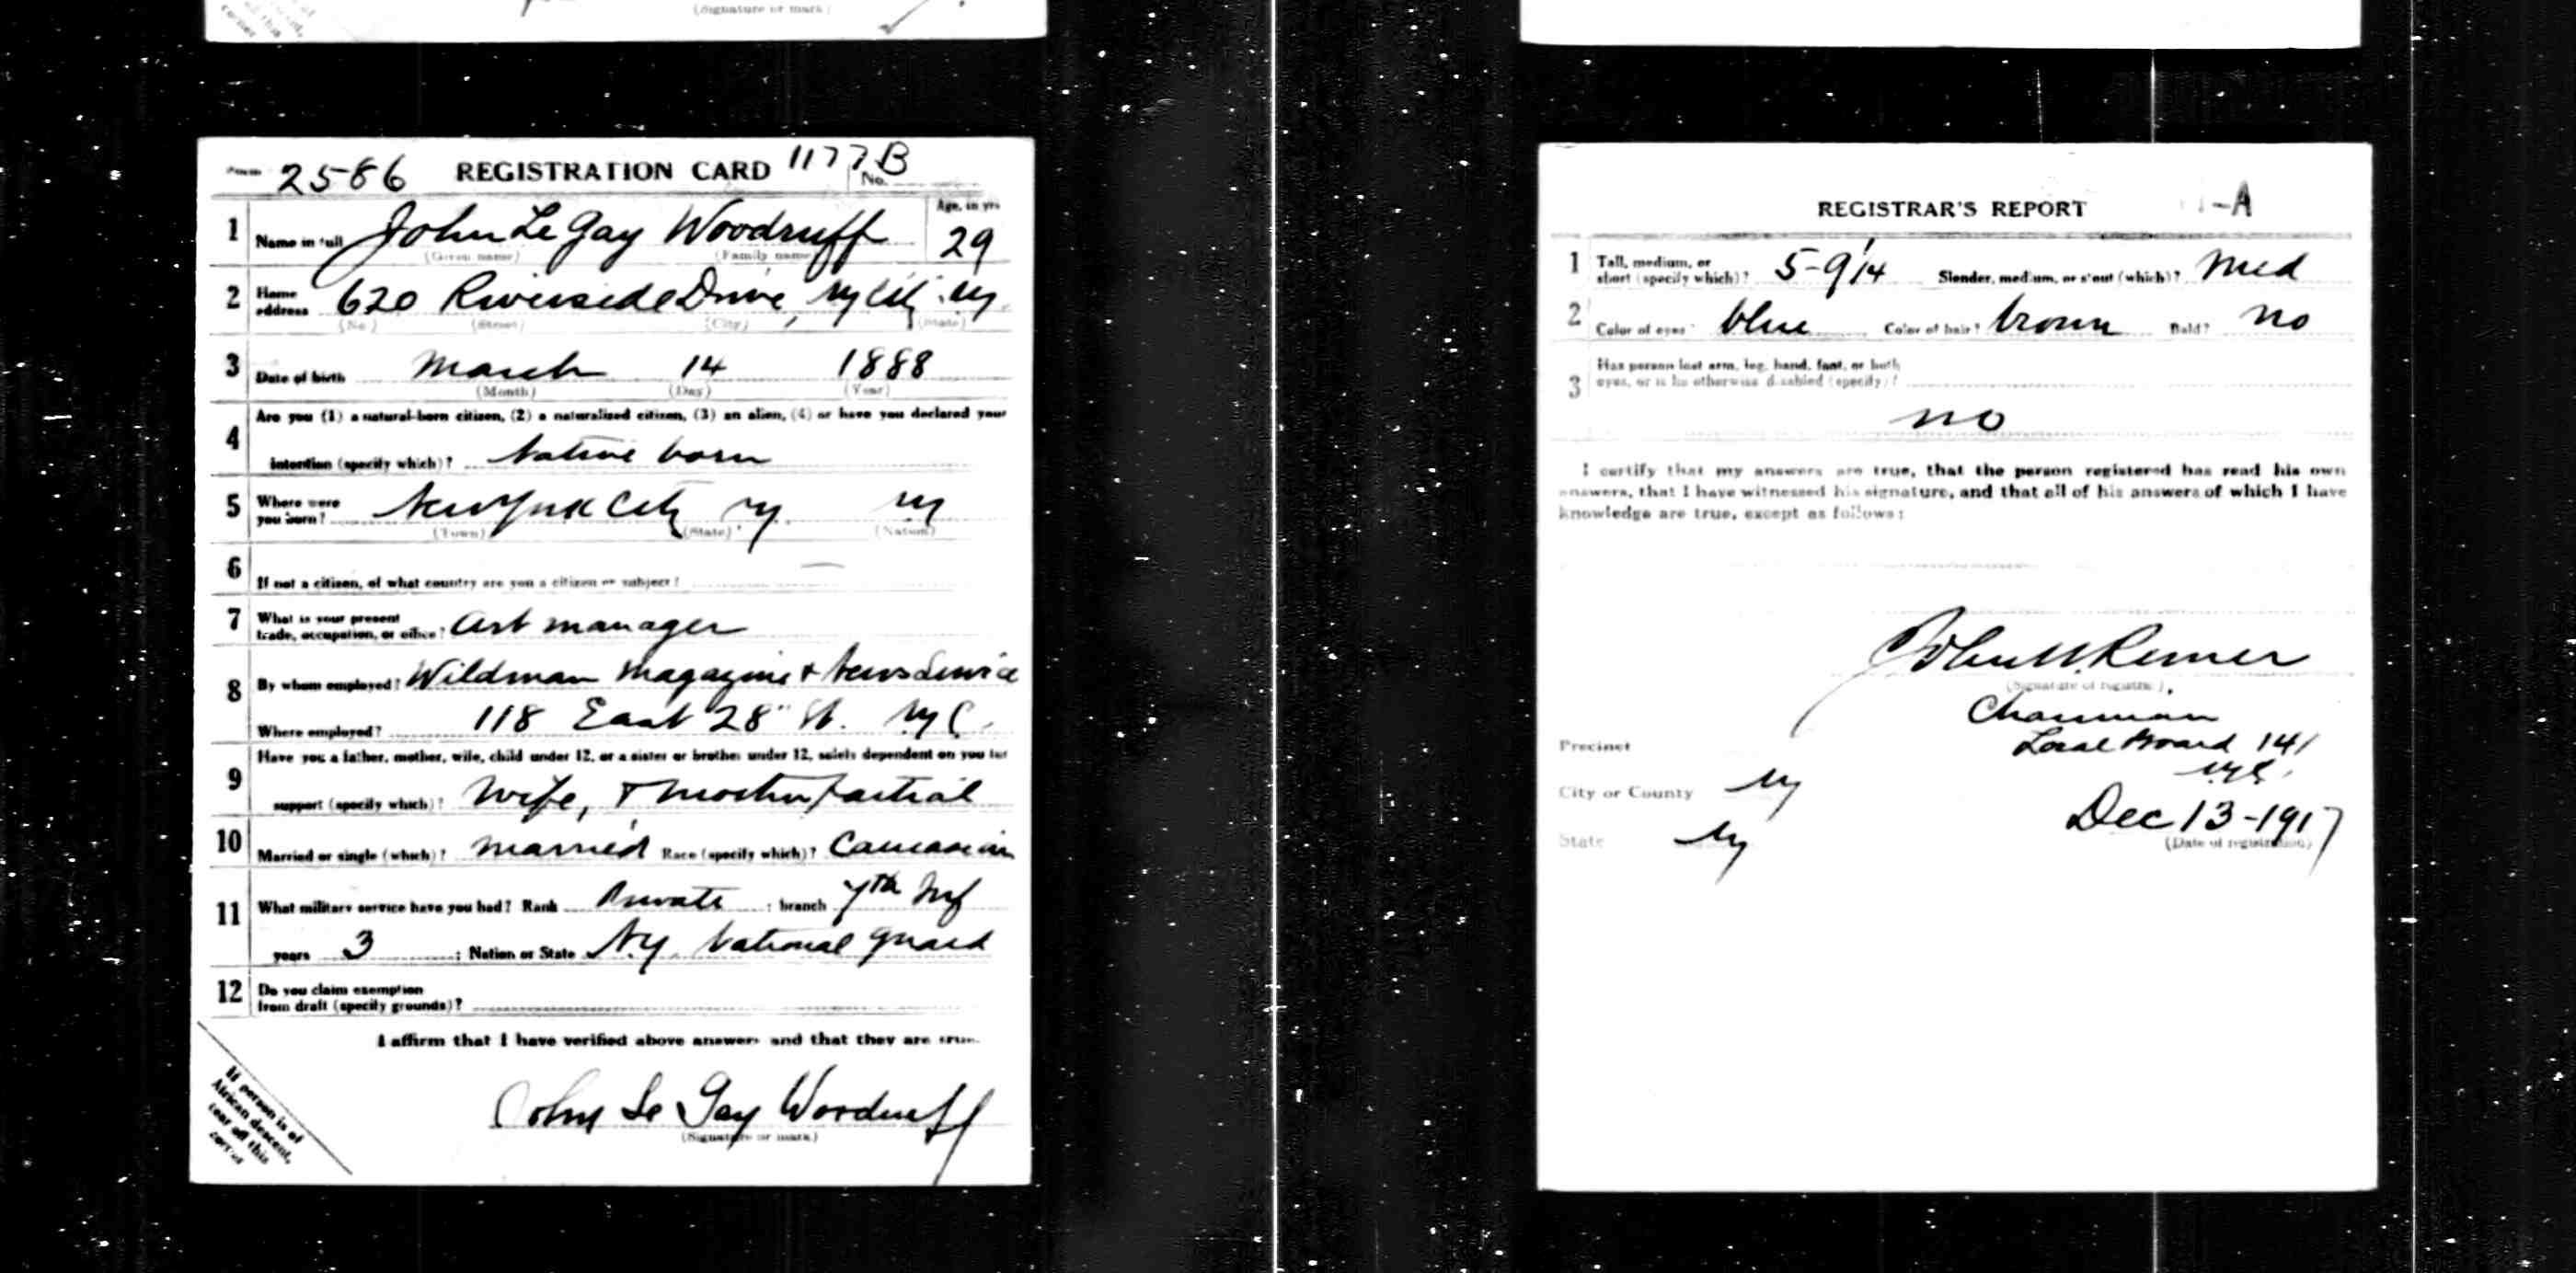 (Signature or mark)
2586 REGISTRATION CARD 1177 B
No.
1 Name in full John Le Gay Woodruff Age, in yrs 29
(Given name) (Family name)
2 Home address 620 Riverside Drive, NY City NY
(No.) (Street) (City) (State)
3 Date of birth March 14 1888
(Month) (Day) (Year)
4 Are you (1) a natural-born citizen, (2) a naturalized citizen, (3) an alien, (4) or have you declared your
intention (specify which)? Native born
5 Where were you born? New York City NY NY
(Town) (State) (Nation)
6 If not a citizen, of what country are you a citizen or subject? —
7 What is your present trade, occupation, or office? Art manager
8 By whom employed? Wildman Magazine & News Service
Where employed? 118 East 28" St. NYC.
9 Have you a father, mother, wife, child under 12, or a sister or brother under 12, solely dependent on you for
support (specify which)? Wife, & Mother partial
10 Married or single (which)? Married Race (specify which)? Caucasian
11 What military service have you had? Rank Private ; branch 7th Inf
years 3 ; Nation or State NY. National Guard
12 Do you claim exemption
from draft (specify grounds)?
I affirm that I have verified above answers and that they are true.
John Le Gay Woodruff
(Signature or mark)
If person is of
African descent,
tear off this
corner
REGISTRAR'S REPORT -A
1 Tall, medium, or short (specify which)? 5-9 1/4 Slender, medium, or stout (which)? Med
2 Color of eyes? blue Color of hair? brown Bald? no
3 Has person lost arm, leg, hand, foot, or both
eyes, or is he otherwise disabled (specify)?
no
I certify that my answers are true, that the person registered has read his own
answers, that I have witnessed his signature, and that all of his answers of which I have
knowledge are true, except as follows:
(Signature of registrar)
Chairman
Precinct
Local Board 141
NYC.
City or County NY
Dec 13-1917
State NY
(Date of registration)